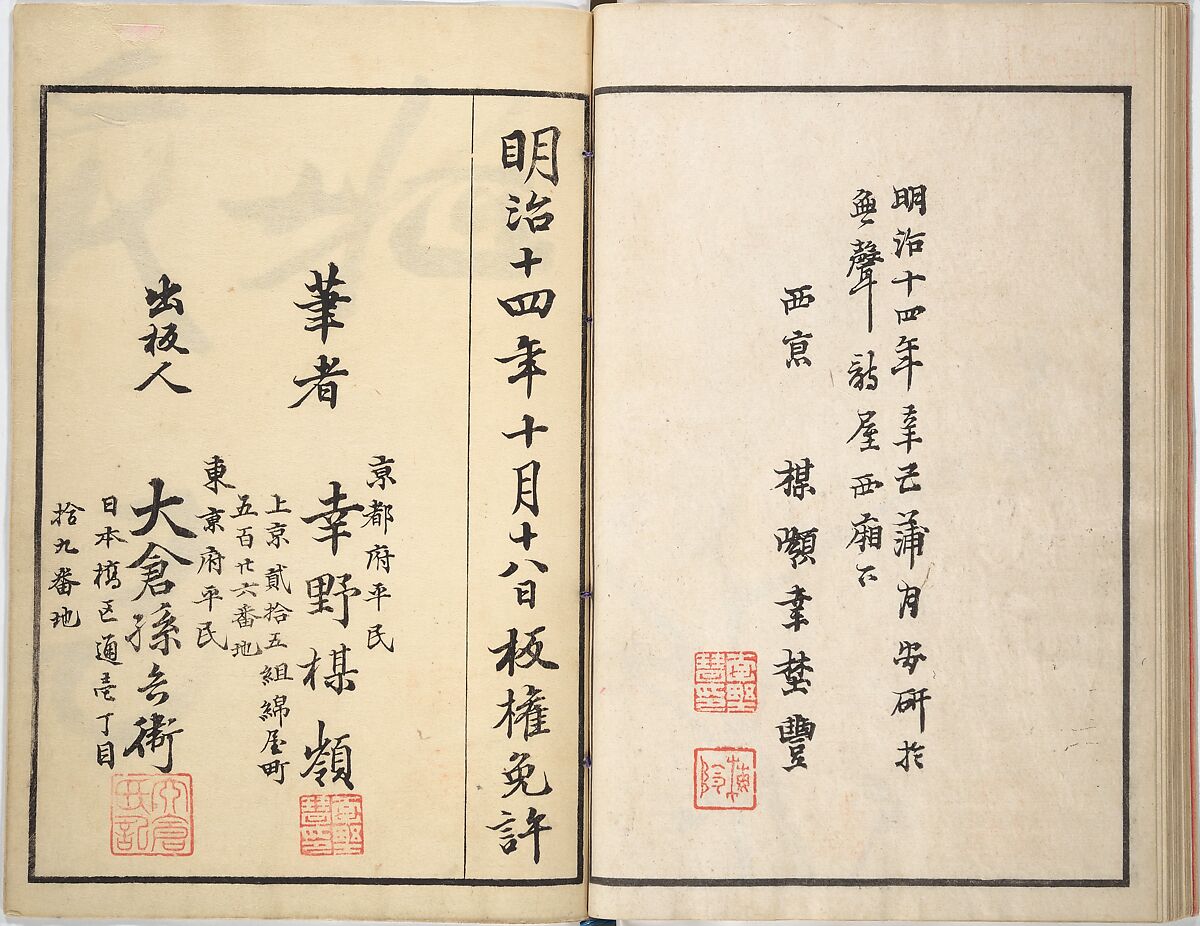 明治十四年辛巳蒲月安研於
無聲詩屋西廂下
西亰 楳嶺幸埜豐
明治十四年十月十八日板權免許
亰都府平民
筆者 幸野楳嶺
上亰貳拾五組綿屋町
五百廿六番地
東亰府平民
出板人 大倉孫兵衛
日本橋区通壱丁目
拾九番地